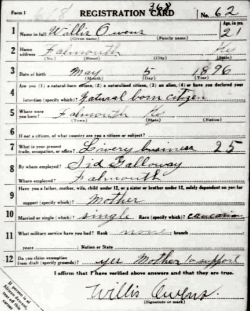 Form 1
368
REGISTRATION CARD No. 62
1 Name in full Willis Owens Age, in yrs. 21
(Given name) (Family name)
2 Home address Falmouth Ky
(No.) (Street) (City) (State)
3 Date of birth May 5 1896
(Month) (Day) (Year)
4 Are you (1) a natural-born citizen, (2) a naturalized citizen, (3) an alien, (4) or have you declared your intention (specify which)? Natural born citizen
5 Where were you born? Falmouth Ky
(Town) (State) (Nation)
6 If not a citizen, of what country are you a citizen or subject?
7 What is your present trade, occupation, or office? Livery business 25
8 By whom employed? Sid Galloway
Where employed? Falmouth
9 Have you a father, mother, wife, child under 12, or a sister or brother under 12, solely dependent on you for support (specify which)? Mother
10 Married or single (which)? single Race (specify which)? caucasian
11 What military service have you had? Rank none branch
years Nation or State
12 Do you claim exemption from draft (specify grounds)? yes Mother to support
I affirm that I have verified above answers and that they are true.
Willis Owens
(Signature or mark)